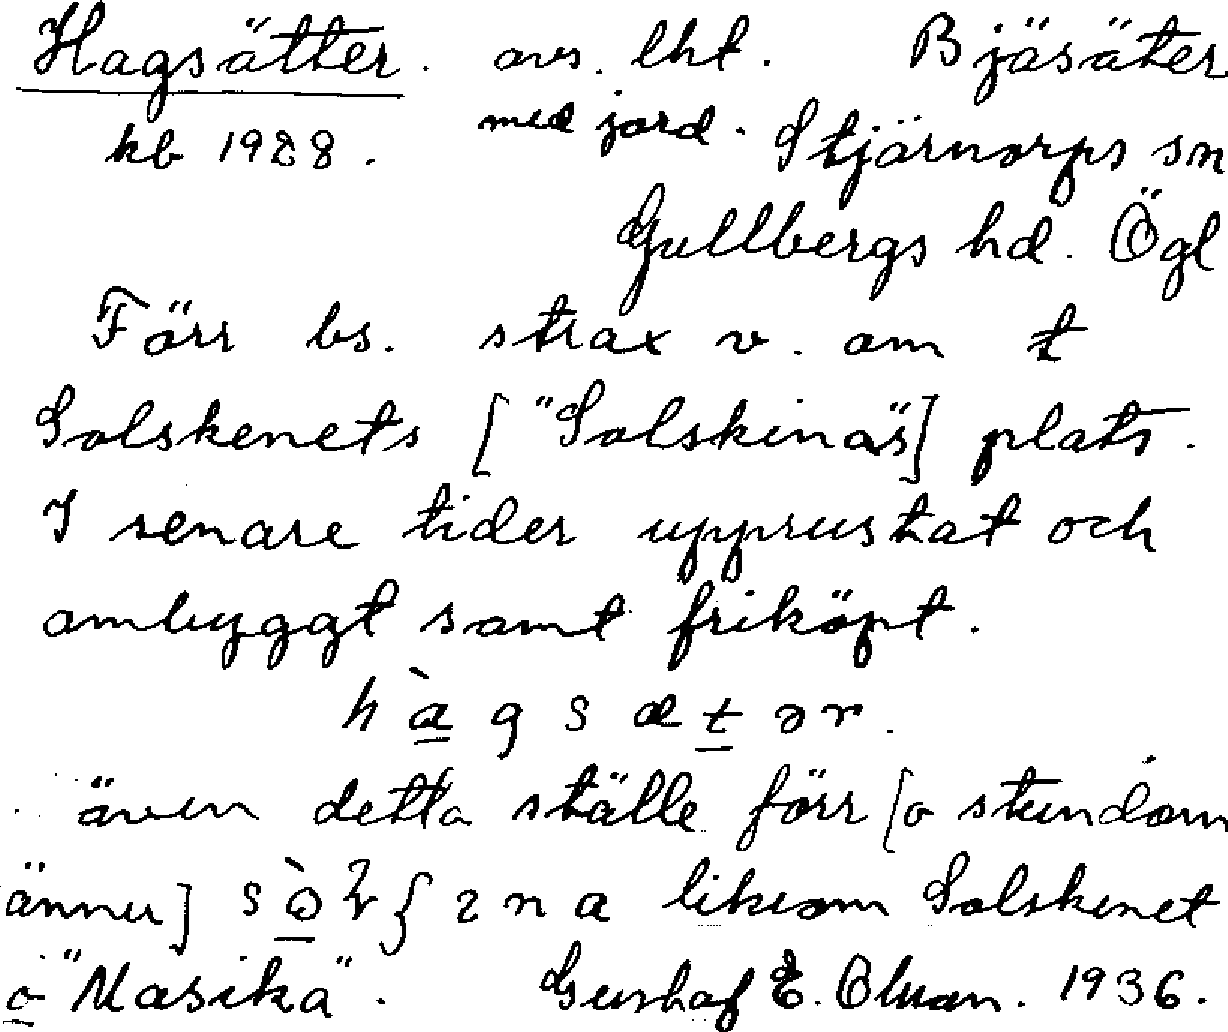 Hagsätter. avs. lht. Bjäsäter
kb 1928. med jord. Stjärnorps sn
Gullbergs hd. Ögl
Förr bs. strax v. om t
Solskenets ["Solskinäs"] plats.
I senare tider upprustat och
ombyggt samt friköpt.
hàgsætər.
även detta ställe förr [o stundom
ännu] liksom Solskenet
o "Masika". Gustaf E. Olsson. 1936.